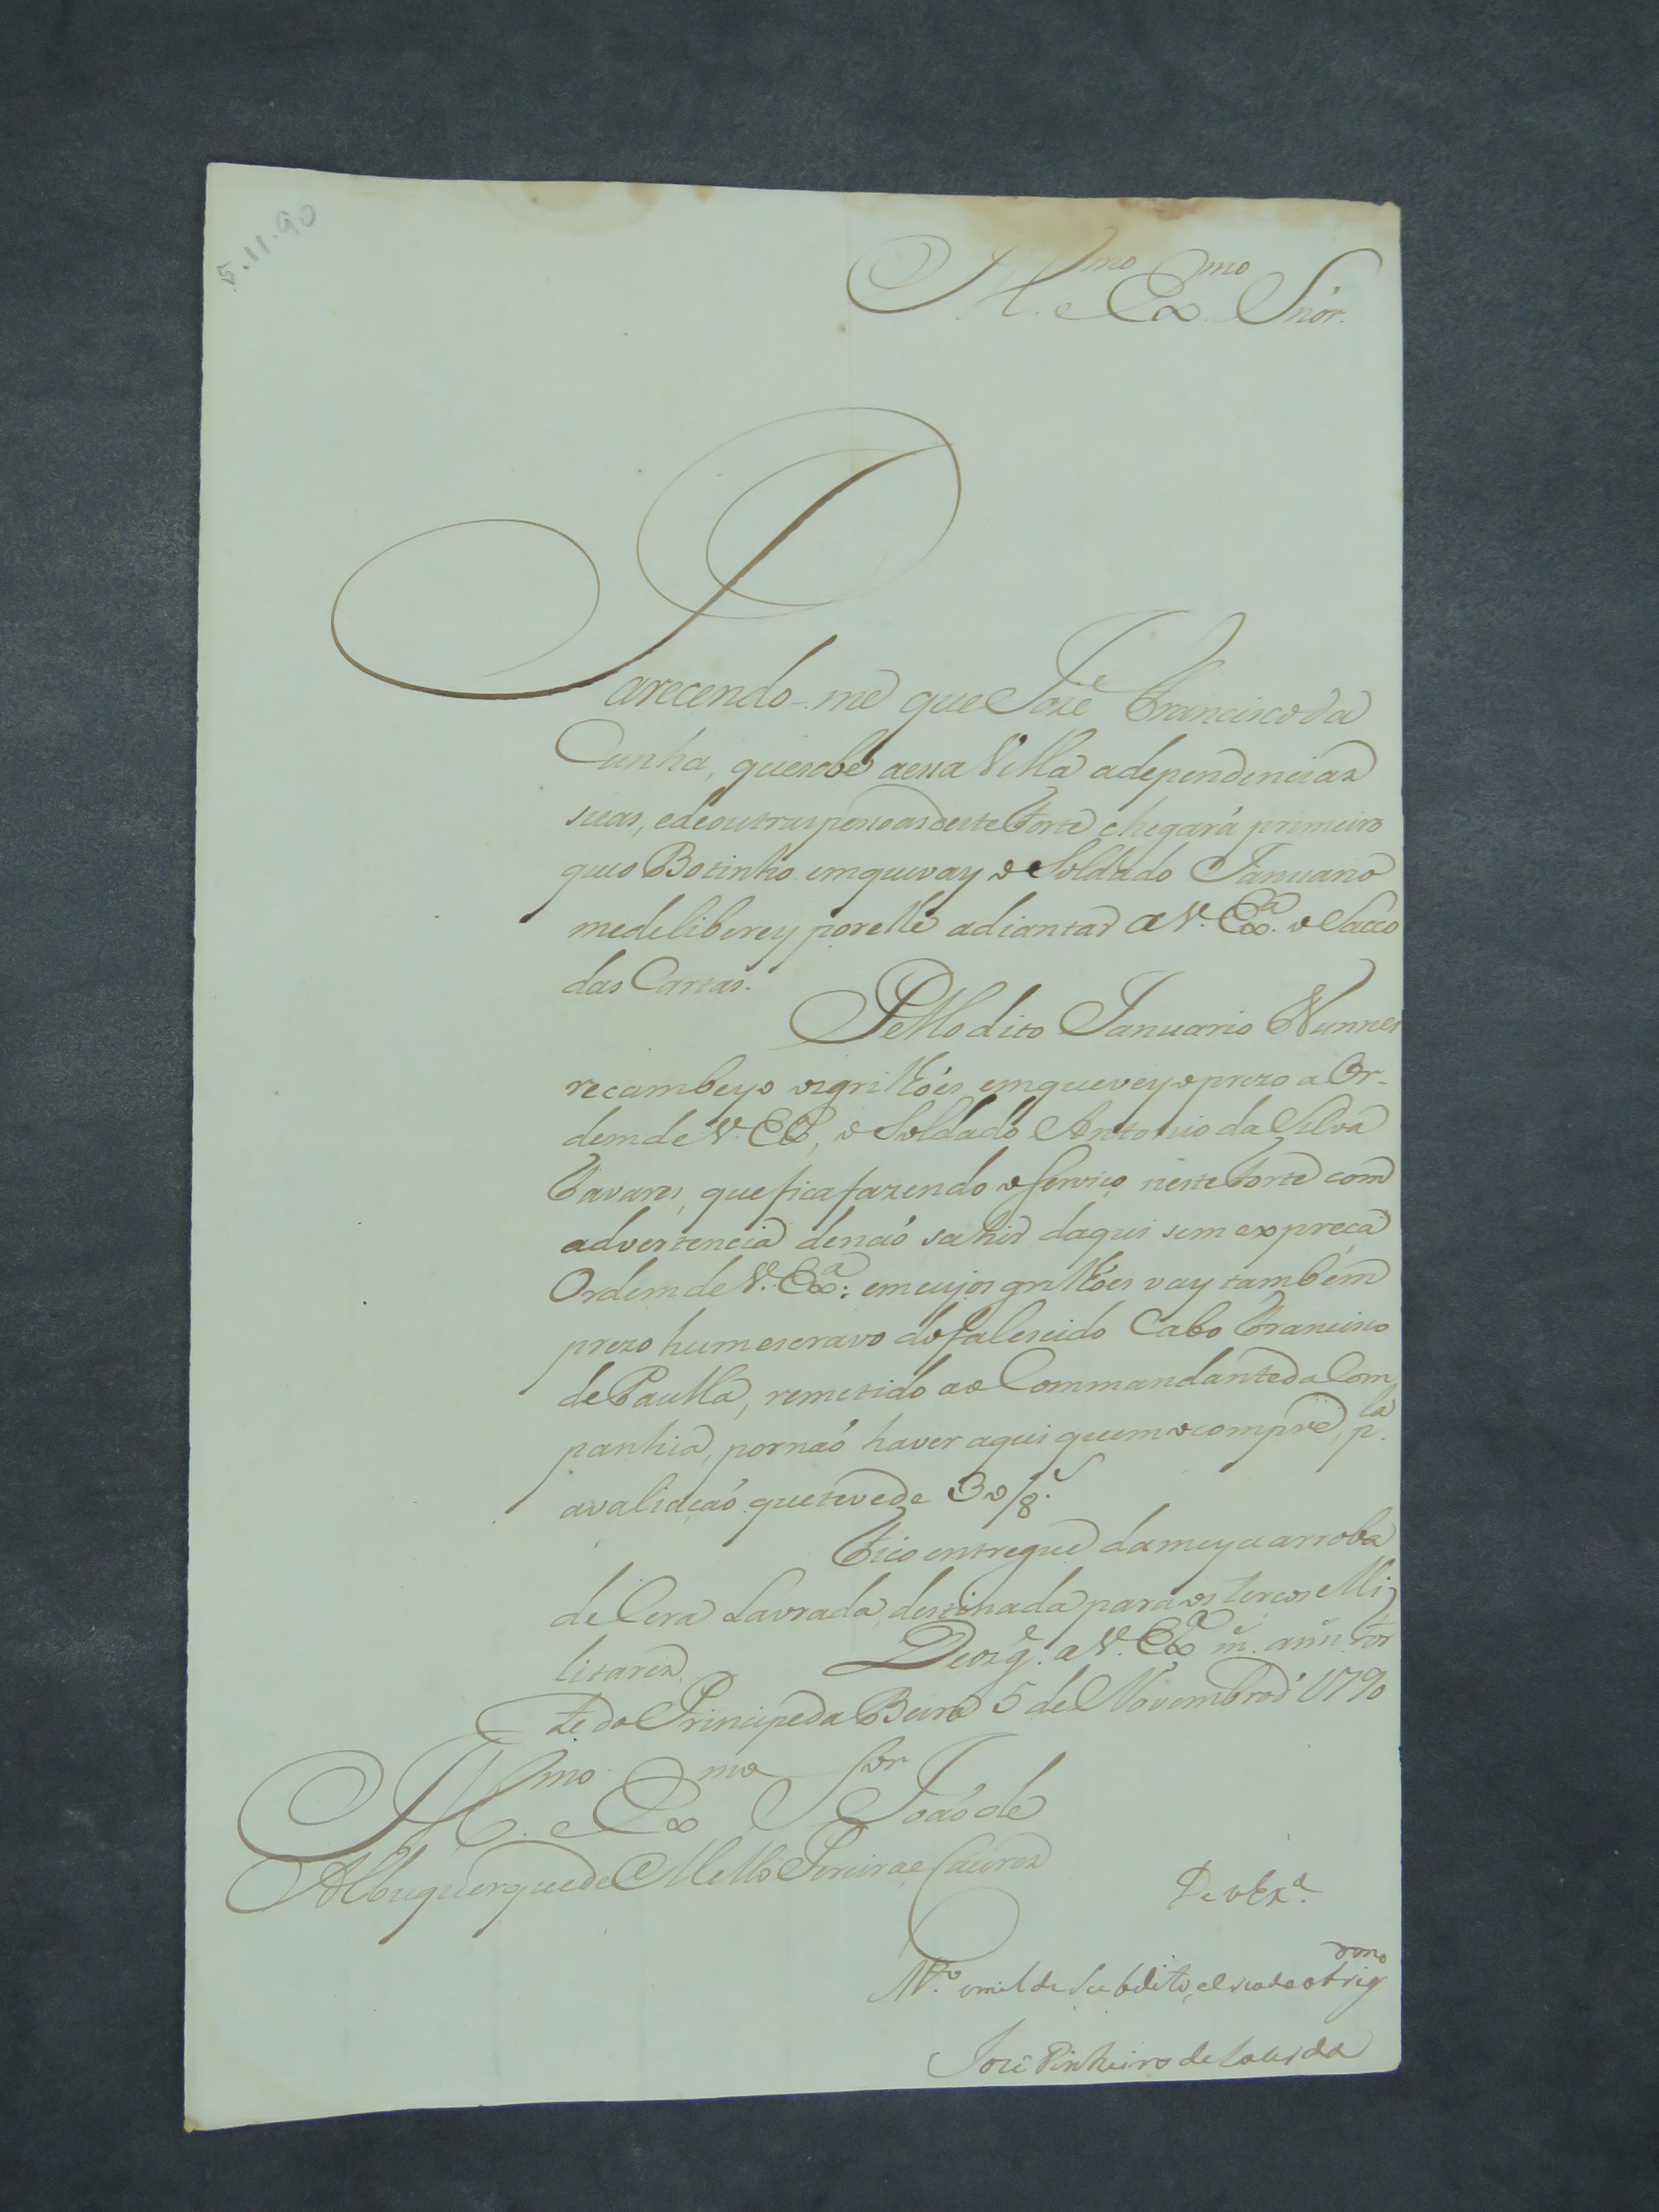 5.11.90
Ill.mo e Ex.mo Snór.
Parecendo-me que Jozé Francisco da
Cunha, que sobe a essa Villa a dependencias
suas, e de outras pessoas deste Forte chegará primeiro
que o Botinho em que vay o Soldado Januario
me deliberey por elle adiantar a V. Ex.a o Sacco
das Cartas.
Pello dito Januario Nunnes
recambeyo os grilhóes em que veyo prezo a Or-
dem de V. Ex.a, o Soldado Antonio da Silva
Tavares, que fica fazendo o Serviço neste Forte com
advertencia de naó sahir daqui sem expreca
Ordem de V. Ex.a: em cujos grilhóes vay tambem
prezo hum escravo do falescido Cabo Francisco
de Paulla, remetido ao Commandante da Com
panhia, por naó haver aqui quem o compre, p.la
avaliaçaó que teve de 30/8.s
Fico entregue da meya arroba
de Cera Lavrada, destinada para os terços Mi
litares. Deos g.e a V. Ex.a m.s ann.s For
te do Principe da Beira 5 de Novembro d' 1790
Ill.mo e Ex.mo Sor Joaó de
Albuquerque de Mello Pereira e Caceres
De V Ex.a
M.to omilde Subdito, e criado obrig.dmo
José Pinheiro de Lacerda